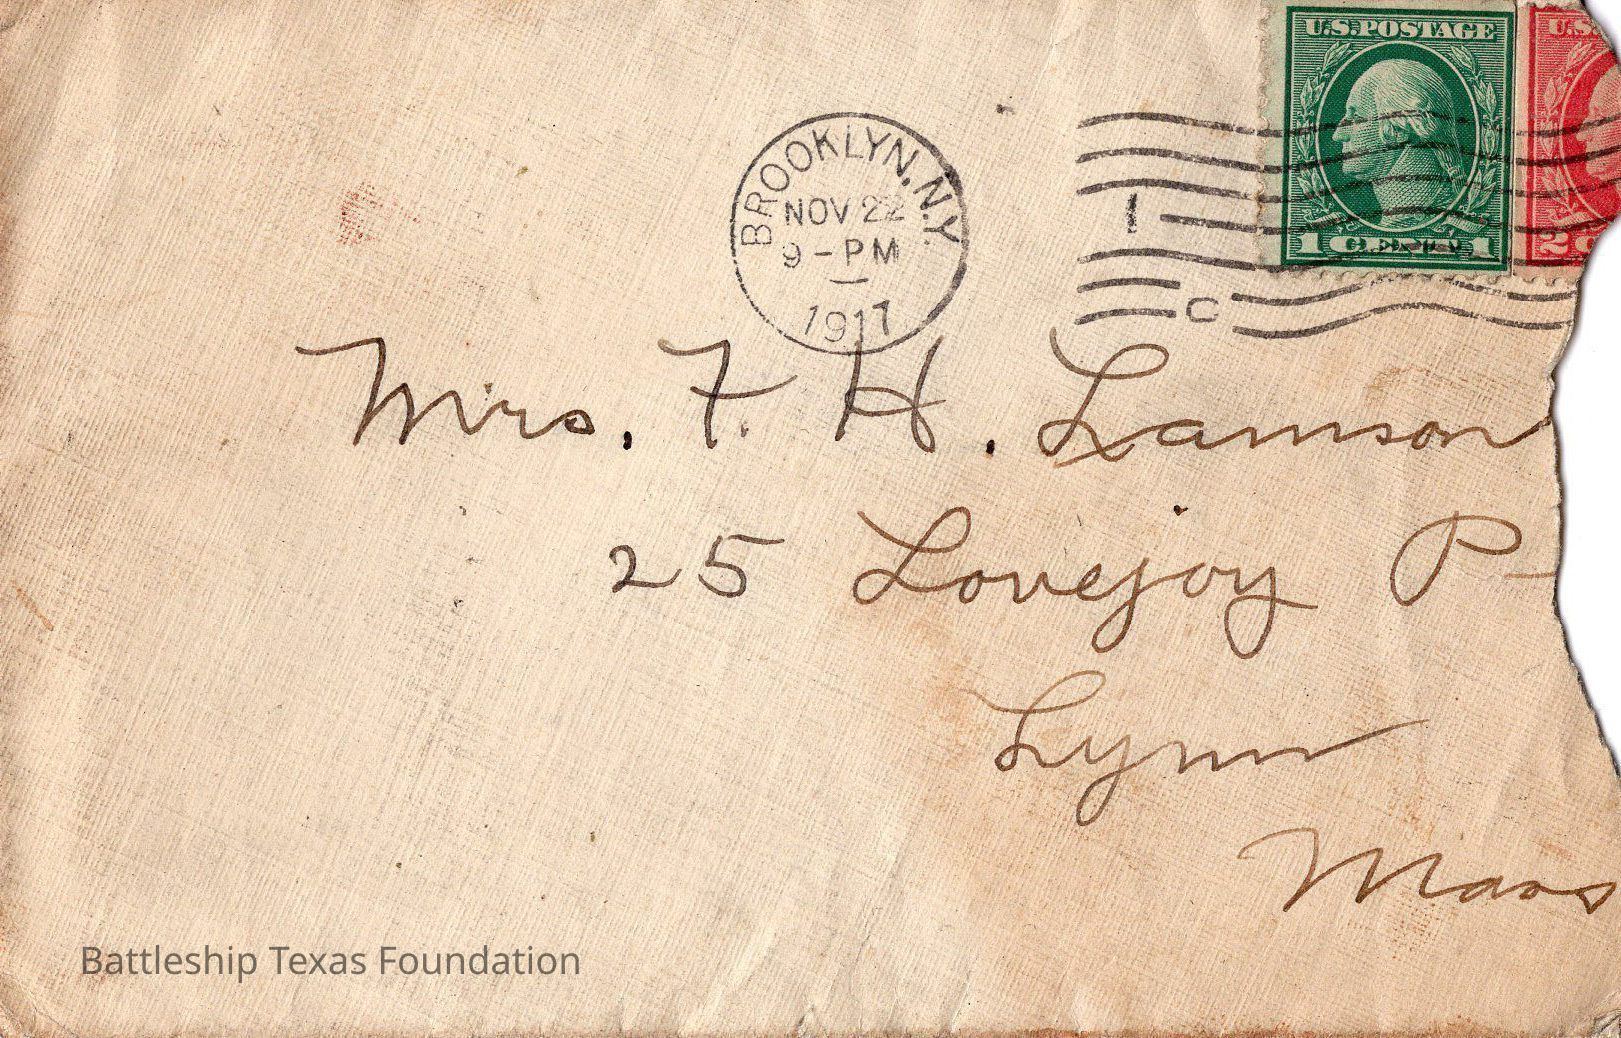 U.S. POSTAGE U.S.
1 CENT 1 2
BROOKLYN, N.Y.
NOV 22
9-PM
1917
1
C
Mrs. F. H. Lamson
25 Lovejoy P-
Lynn
Mass
Battleship Texas Foundation